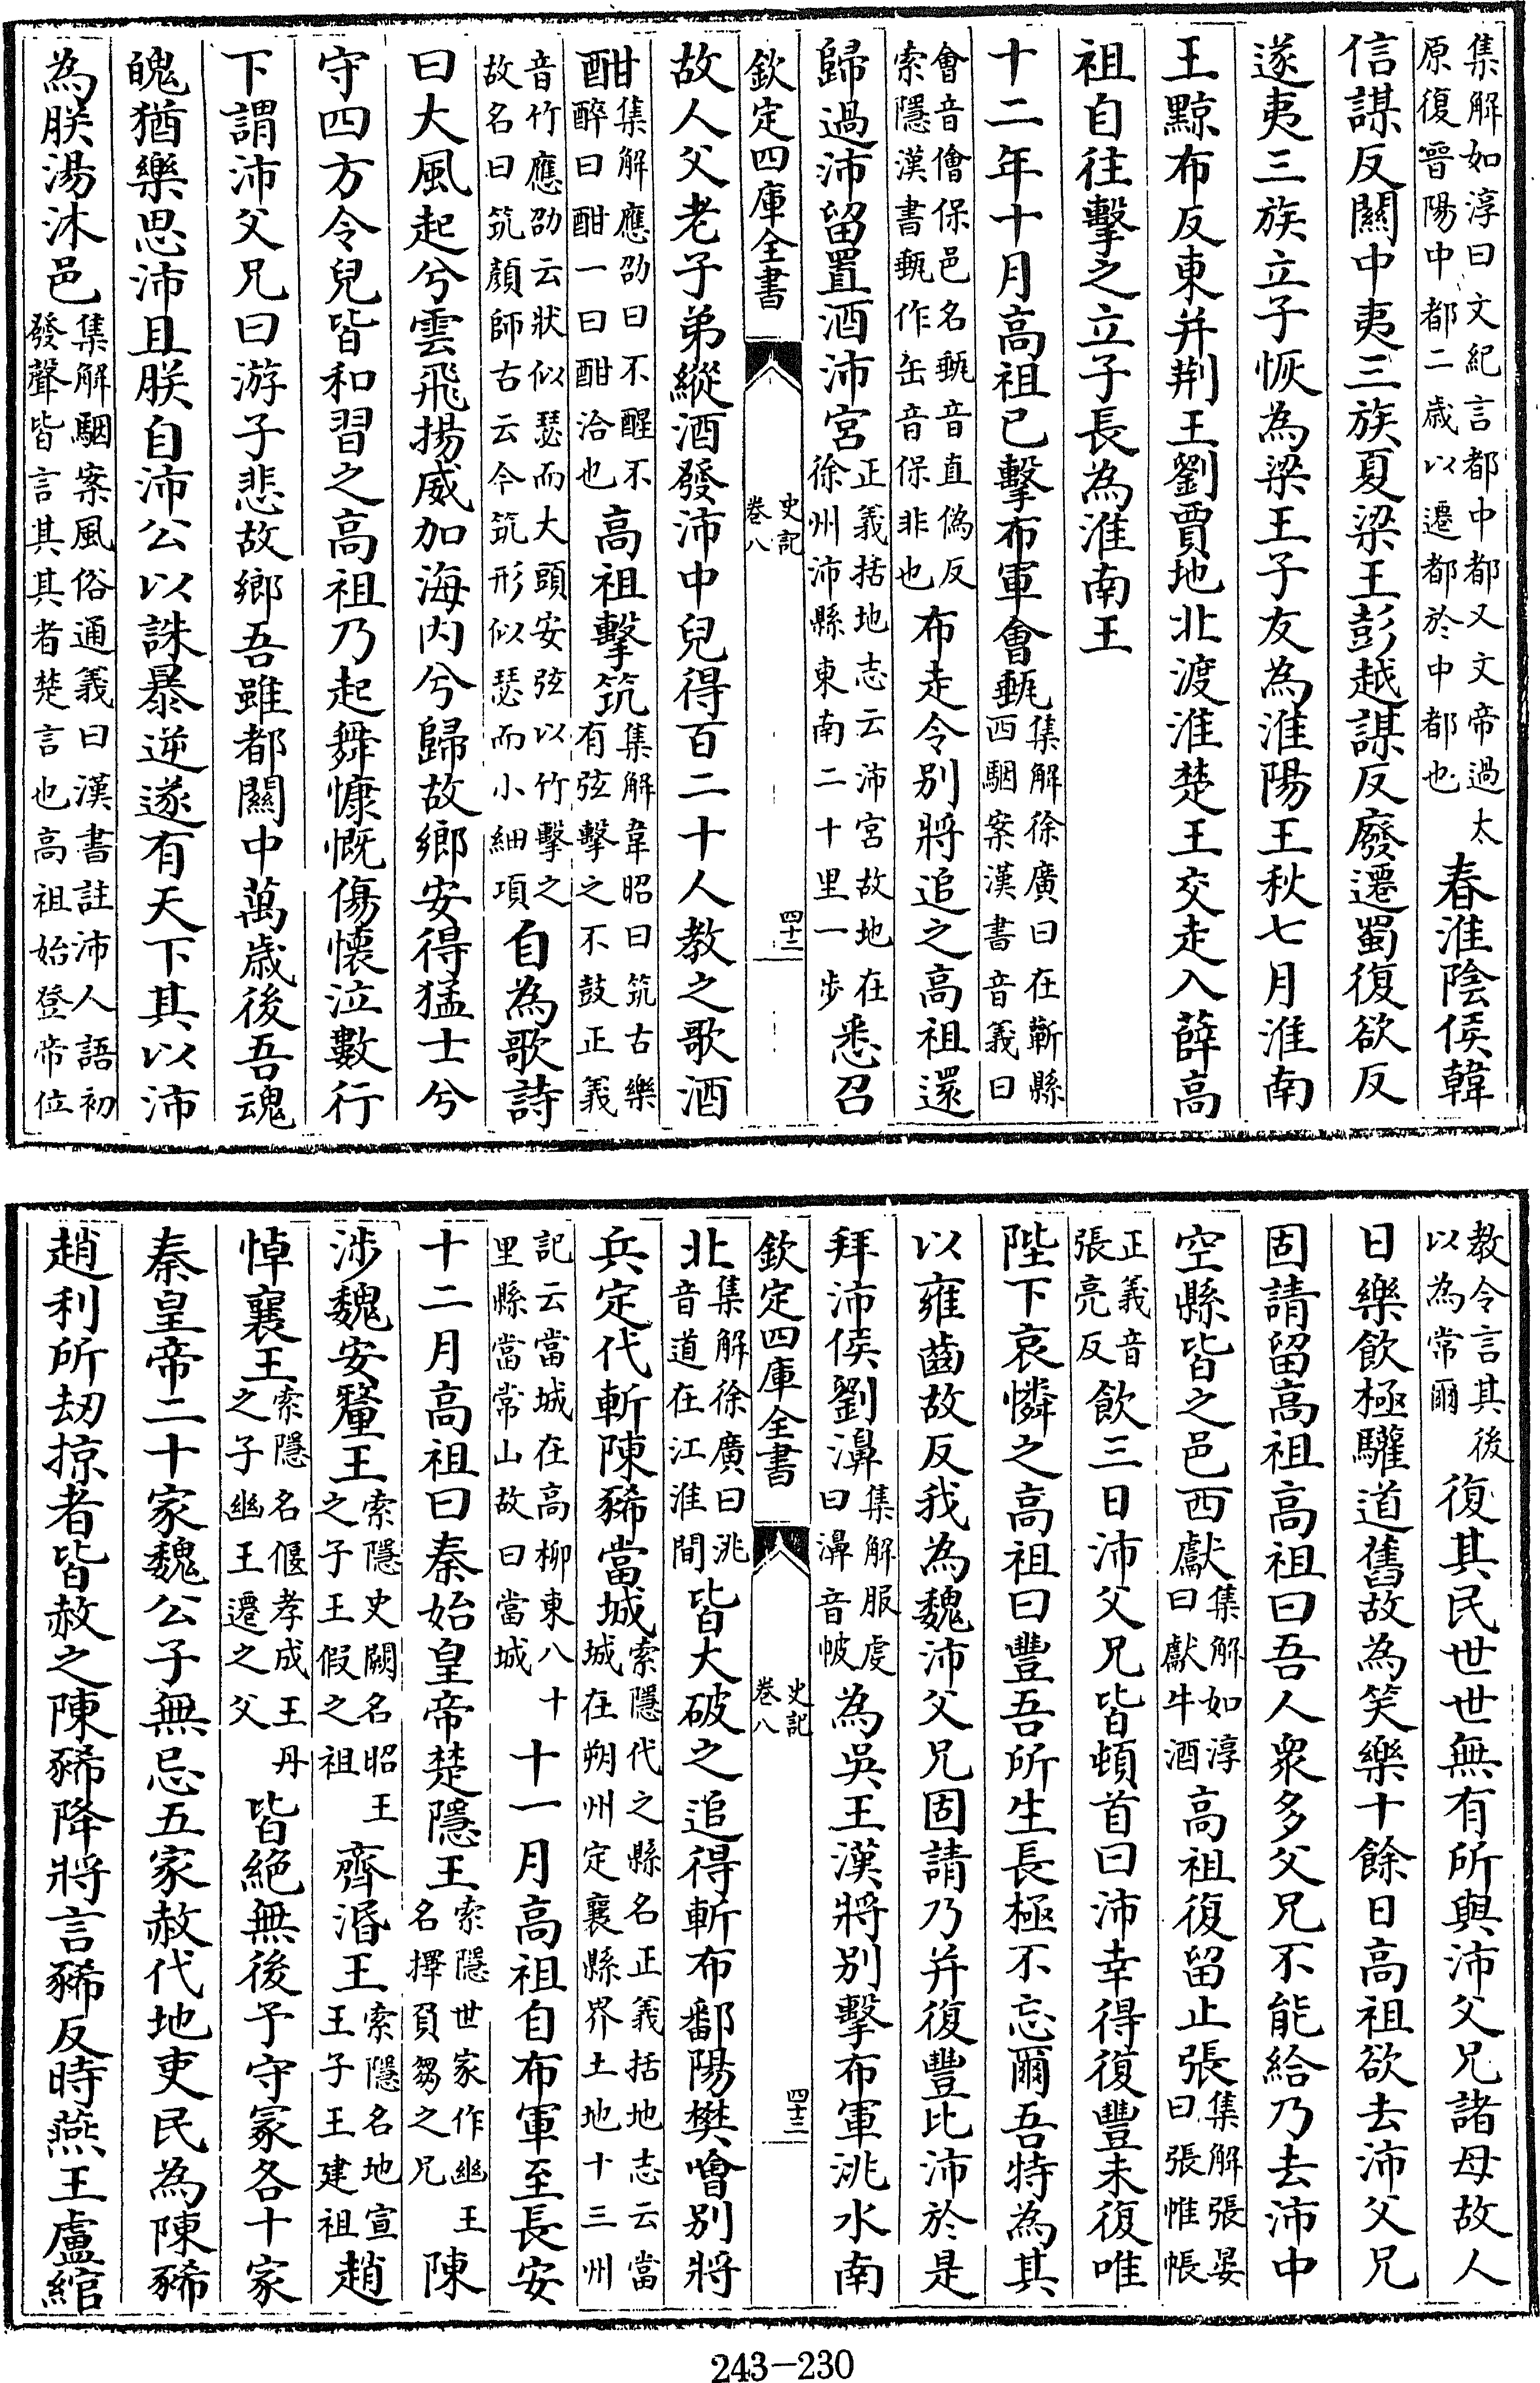 集解如淳曰文紀言都中都又文帝過太
原復晉陽中都二歲以遷都於中都也
春淮陰侯韓
信謀反關中夷三族夏梁王彭越謀反廢遷蜀復欲反
遂夷三族立子恢為梁王子友為淮陽王秋七月淮南
王黥布反東并荆王劉賈地北渡淮楚王交走入薛高
祖自往擊之立子長為淮南王
十二年十月高祖已擊布軍會甀
集解徐廣曰在蘄縣
西駰案漢書音義曰
會音儈保邑名甀音直偽反
索隱漢書甀作缶音保非也
布走令别將追之高祖還
歸過沛留置酒沛宮
正義括地志云沛宮故地在
徐州沛縣東南二十里一步
悉召
欽定四庫全書
史記
卷八
四十二
故人父老子弟縱酒發沛中兒得百二十人教之歌酒
酣
集解應劭曰不醒不
醉曰酣一曰酣洽也
高祖擊筑
集解韋昭曰筑古樂
有弦擊之不鼓正義
音竹應劭云狀似瑟而大頭安弦以竹擊之
故名曰筑顏師古云今筑形似瑟而小細項
自為歌詩
曰大風起兮雲飛揚威加海内兮歸故鄉安得猛士兮
守四方令兒皆和習之高祖乃起舞慷慨傷懷泣數行
下謂沛父兄曰游子悲故鄉吾雖都關中萬歲後吾魂
魄猶樂思沛且朕自沛公以誅暴逆遂有天下其以沛
為朕湯沐邑
集解駰案風俗通義曰漢書註沛人語初
發聲皆言其其者楚言也高祖始登帝位
教令言其後
以為常爾
復其民世世無有所與沛父兄諸母故人
日樂飲極驩道舊故為笑樂十餘日高祖欲去沛父兄
固請留高祖高祖曰吾人衆多父兄不能給乃去沛中
空縣皆之邑西獻
集解如淳
曰獻牛酒
高祖復留止張
集解張晏
曰張帷帳
正義音
張亮反
飲三日沛父兄皆頓首曰沛幸得復豐未復唯
陛下哀憐之高祖曰豐吾所生長極不忘爾吾特為其
以雍齒故反我為魏沛父兄固請乃并復豐比沛於是
拜沛侯劉濞
集解服虔
曰濞音帔
為吳王漢將别擊布軍洮水南
欽定四庫全書
史記
卷八
四十三
北
集解徐廣曰洮
音道在江淮間
皆大破之追得斬布鄱陽樊噲别將
兵定代斬陳豨當城
索隱代之縣名正義括地志云當
城在朔州定襄縣界土地十三州
記云當城在高柳東八十
里縣當常山故曰當城
十一月高祖自布軍至長安
十二月高祖曰秦始皇帝楚隱王
索隱世家作幽王
名擇負芻之兄
陳
涉魏安釐王
索隱史闕名昭王
之子王假之祖
齊湣王
索隱名地宣
王子王建祖
趙
悼襄王
索隱名偃孝成王丹
之子幽王遷之父
皆絕無後予守冡各十家
秦皇帝二十家魏公子無忌五家赦代地吏民為陳豨
趙利所刧掠者皆赦之陳豨降將言豨反時燕王盧綰
243-230